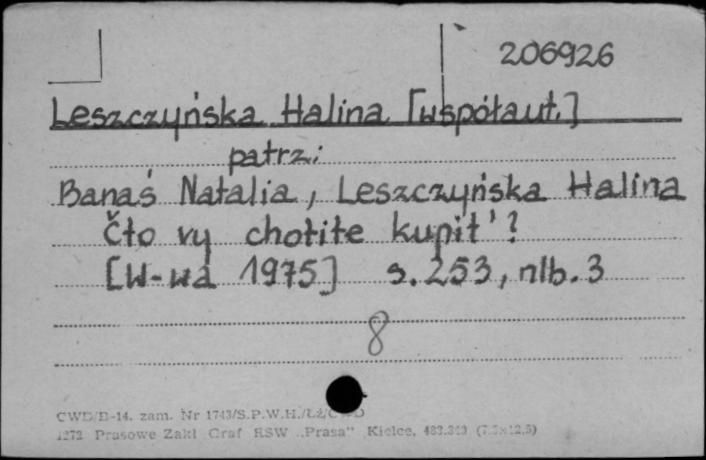 206926
Leszczyńska Halina [współaut.]
patrz:
Banaś Natalia, Leszczyńska Halina
Čto vy chotite kupit'?
[W-wa 1975] s. 253, nlb. 3
8
CWD/B-14. zam. Nr 1743/S.P.W.H./
Prasowe Zakł Graf RSW „Prasa" Kielce,